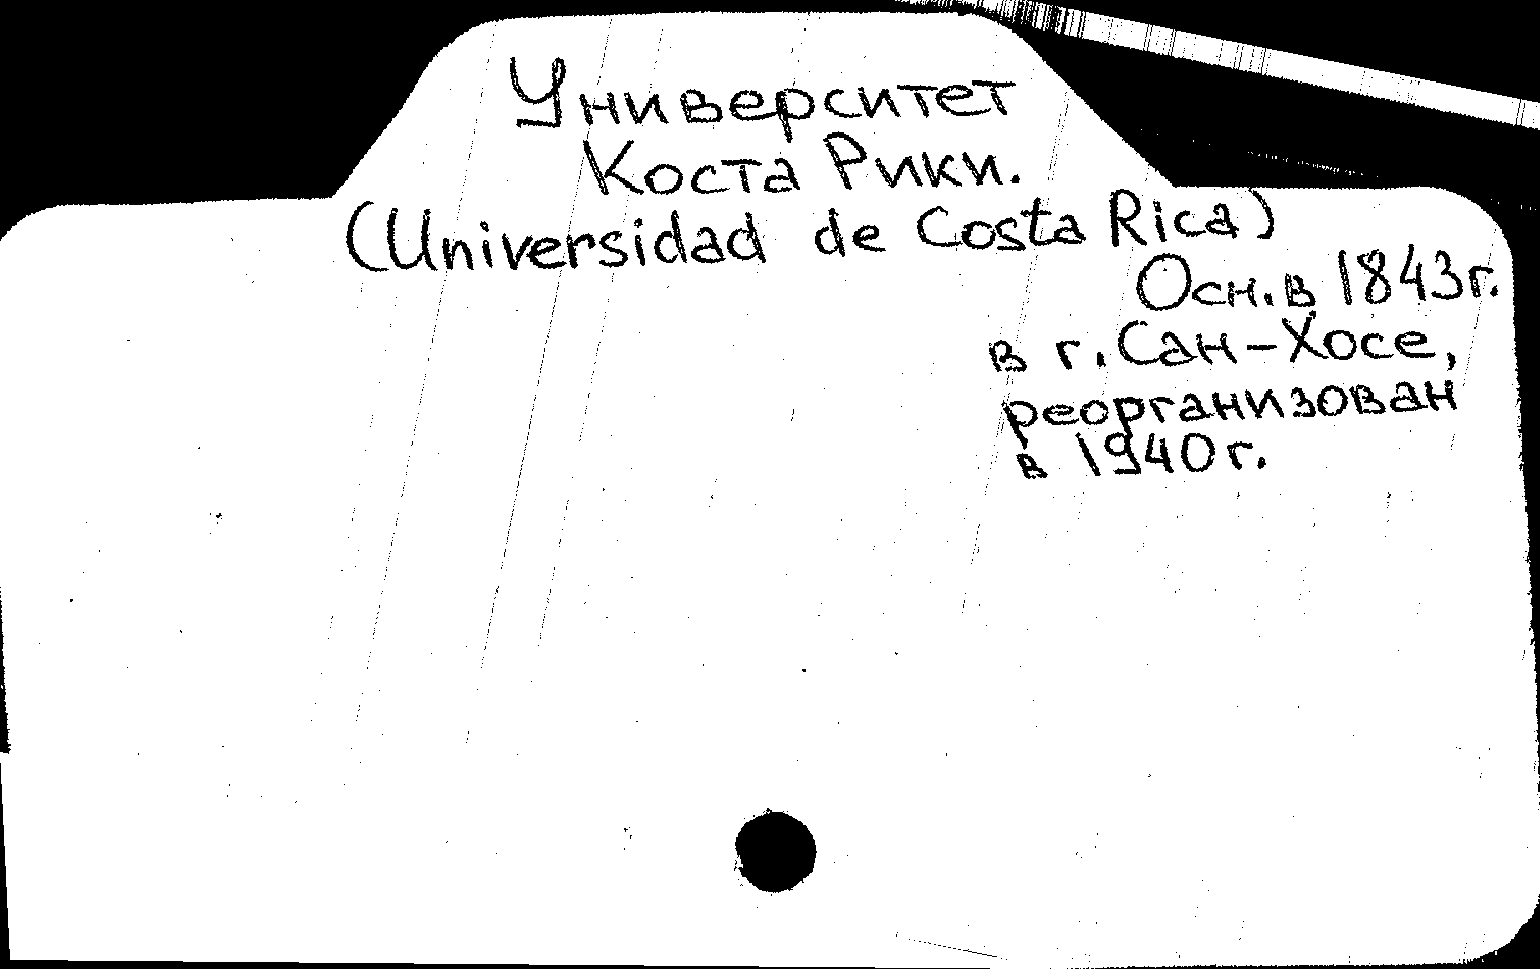 Университет
Коста Рики.
(Universidad de Costa Rica)
Осн. в 1843г.
в г. Сан-Хосе,
реорганизован
в 1940г.